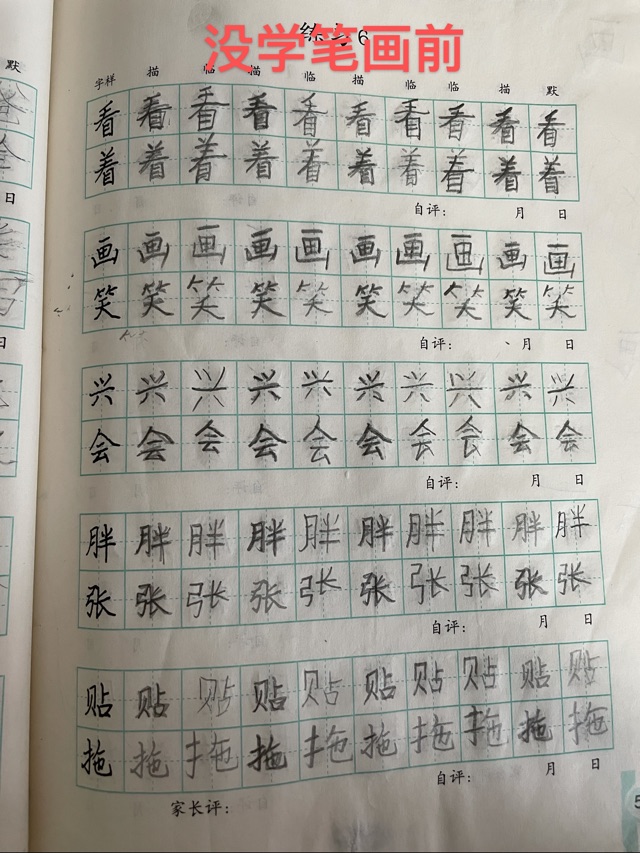 没学笔画前
练习6
默
字样 描 临 描 临 描 临 临 描 默
看 看 看 看 看 看 看 看 看 看
着 着 着 着 着 着 着 着 着 着
日
自评： 月 日
画 画 画 画 画 画 画 画 画 画
笑 笑 笑 笑 笑 笑 笑 笑 笑 笑
日
自评： 月 日
兴 兴 兴 兴 兴 兴 兴 兴 兴 兴
会 会 会 会 会 会 会 会 会 会
自评： 月 日
胖 胖 胖 胖 胖 胖 胖 胖 胖 胖
张 张 张 张 张 张 张 张 张 张
自评： 月 日
贴 贴 贴 贴 贴 贴 贴 贴 贴 贴
拖 拖 拖 拖 拖 拖 拖 拖 拖 拖
自评： 月 日
家长评：
5